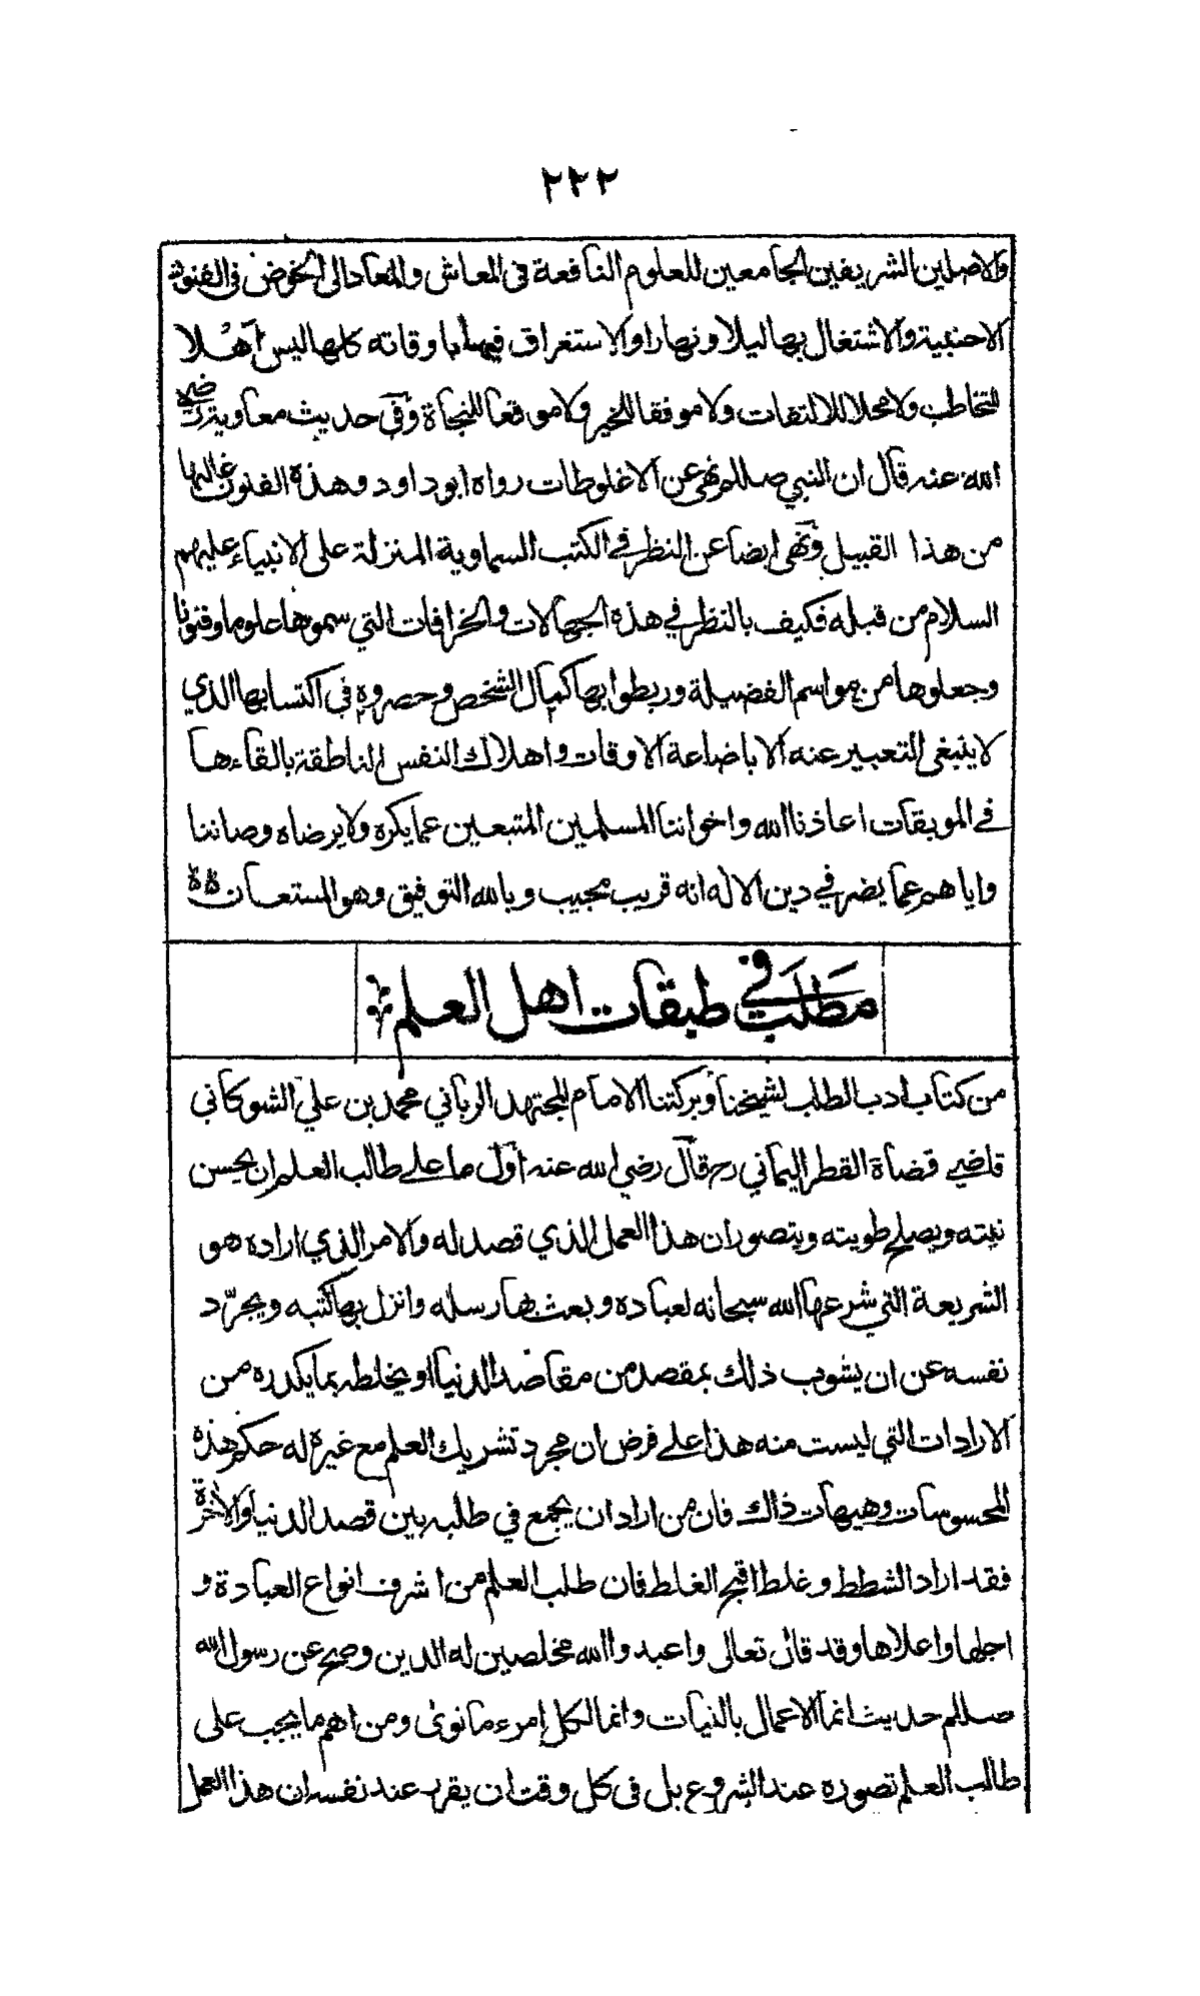 ٢٢٢
والاصلين الشريفين الجامعين للعلوم النافعة في المعاش والمعاد الى الخوض في الفنون
الاجنبية والاشتغال بها ليلا ونهارا والاستغراق فيها باوقاته كلها ليس اهلا
للتخاطب ولا محلا للالتفات ولا موفقا للخير ولا موقعا للنجاة وفي حديث معاوية رضي
الله عنه قال ان النبي صللم نهى عن الاغلوطات رواه ابو داود وهذه الفنون غالبها
من هذا القبيل ونهى ايضا عن النظر في الكتب السماوية المنزلة على الانبياء عليهم
السلام من قبله فكيف بالنظر في هذه الجهالات والخرافات التي سموها علوما وفنونا
وجعلوها من مواسم الفضيلة وربطوا بها كمال الشخص وحصروه في اكتسابها الذي
لا ينبغي التعبير عنه الا باضاعة الاوقات واهلاك النفس الناطقة بالقاءها
في الموبقات اعاذنا الله واخواننا المسلمين المتبعين عما يكره ولا يرضاه وصاننا
واياهم عما يضر في دين الاله انه قريب مجيب وبالله التوفيق وهو المستعان
مطلب في طبقات اهل العلم
من كتاب ادب الطلب لشيخنا وبركتنا الامام المجتهد الرباني محمد بن علي الشوكاني
قاضي قضاة القطر اليماني رح قال رضي الله عنه اول ما على طالب العلم ان يحسن
نيته ويصلح طويته ويتصور ان هذا العمل الذي قصد له والامر الذي اراده هو
الشريعة التي شرعها الله سبحانه لعباده وبعث بها رسله وانزل بها كتبه ويجرّد
نفسه عن ان يشوب ذلك بمقصد من مقاصد الدنيا او يخلطه بما يكدره من
الارادات التي ليست منه هذا على فرض ان مجرد تشريك العلم مع غيره له حكم هذه
المحسوسات وهيهات ذاك فان من اراد ان يجمع في طلبه بين قصد الدنيا والاخرة
فقد اراد الشطط وغلط اقبح الغلط فان طلب العلم من اشرف انواع العبادة و
اجلها واعلاها وقد قال تعالى واعبدوا الله مخلصين له الدين وصح عن رسول الله
صللم حديث انما الاعمال بالنيات وانما لكل إمرء ما نوى ومن اهم ما يجب على
طالب العلم تصوره عند الشروع بل في كل وقت ان يقرر عند نفسه ان هذا العمل